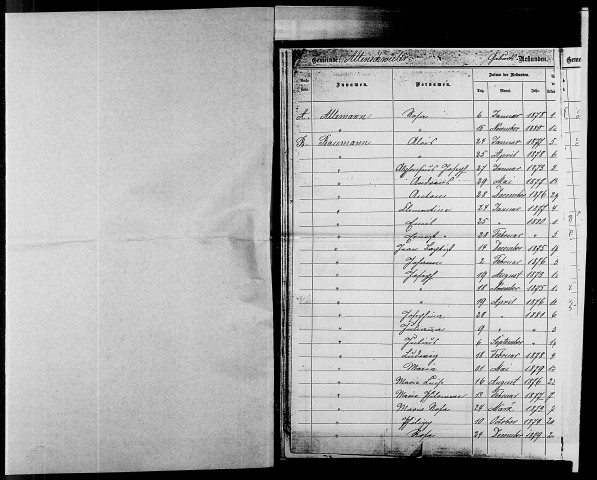 Gemeinde: Attenschwiller Geburts Urkunden.
Zunamen. Vornamen. Datum der Urkunden.
Tag. Monat. Jahr.
A. Allemann Rosa 6 Januar 1878 1
" " 16 November 1880 14
B. Baumann Alois 21 Januar 1877 5
" " 25 April 1878 6
" Alphonsus Joseph 27 Januar 1873
" Andreas 29 Mai 1877 13
" Antoni 28 December 1876 29
" Clementina 24 Januar 1877 4
" Emil 25 " 1880
" Ernest 28 Februar " 5
" Jean Baptist 14 December 1875
" Johann 2 Februar 1876 3
" Joseph 19 August 1873
" " 18 November 1875
" " 19 April 1876
" Josephina 28 " 1881 6
" Juliana 9 " "
" Justus 6 September " 14
" Ludwig 18 Februar 1878
" Maria 31 Mai 1879
" Maria Luise 16 August 1876
" Maria Philomena 13 Februar 1877
" Maria Rosa 24 März 1873
" Philipp 10 October 1874 20
" Rosa 24 December 1879